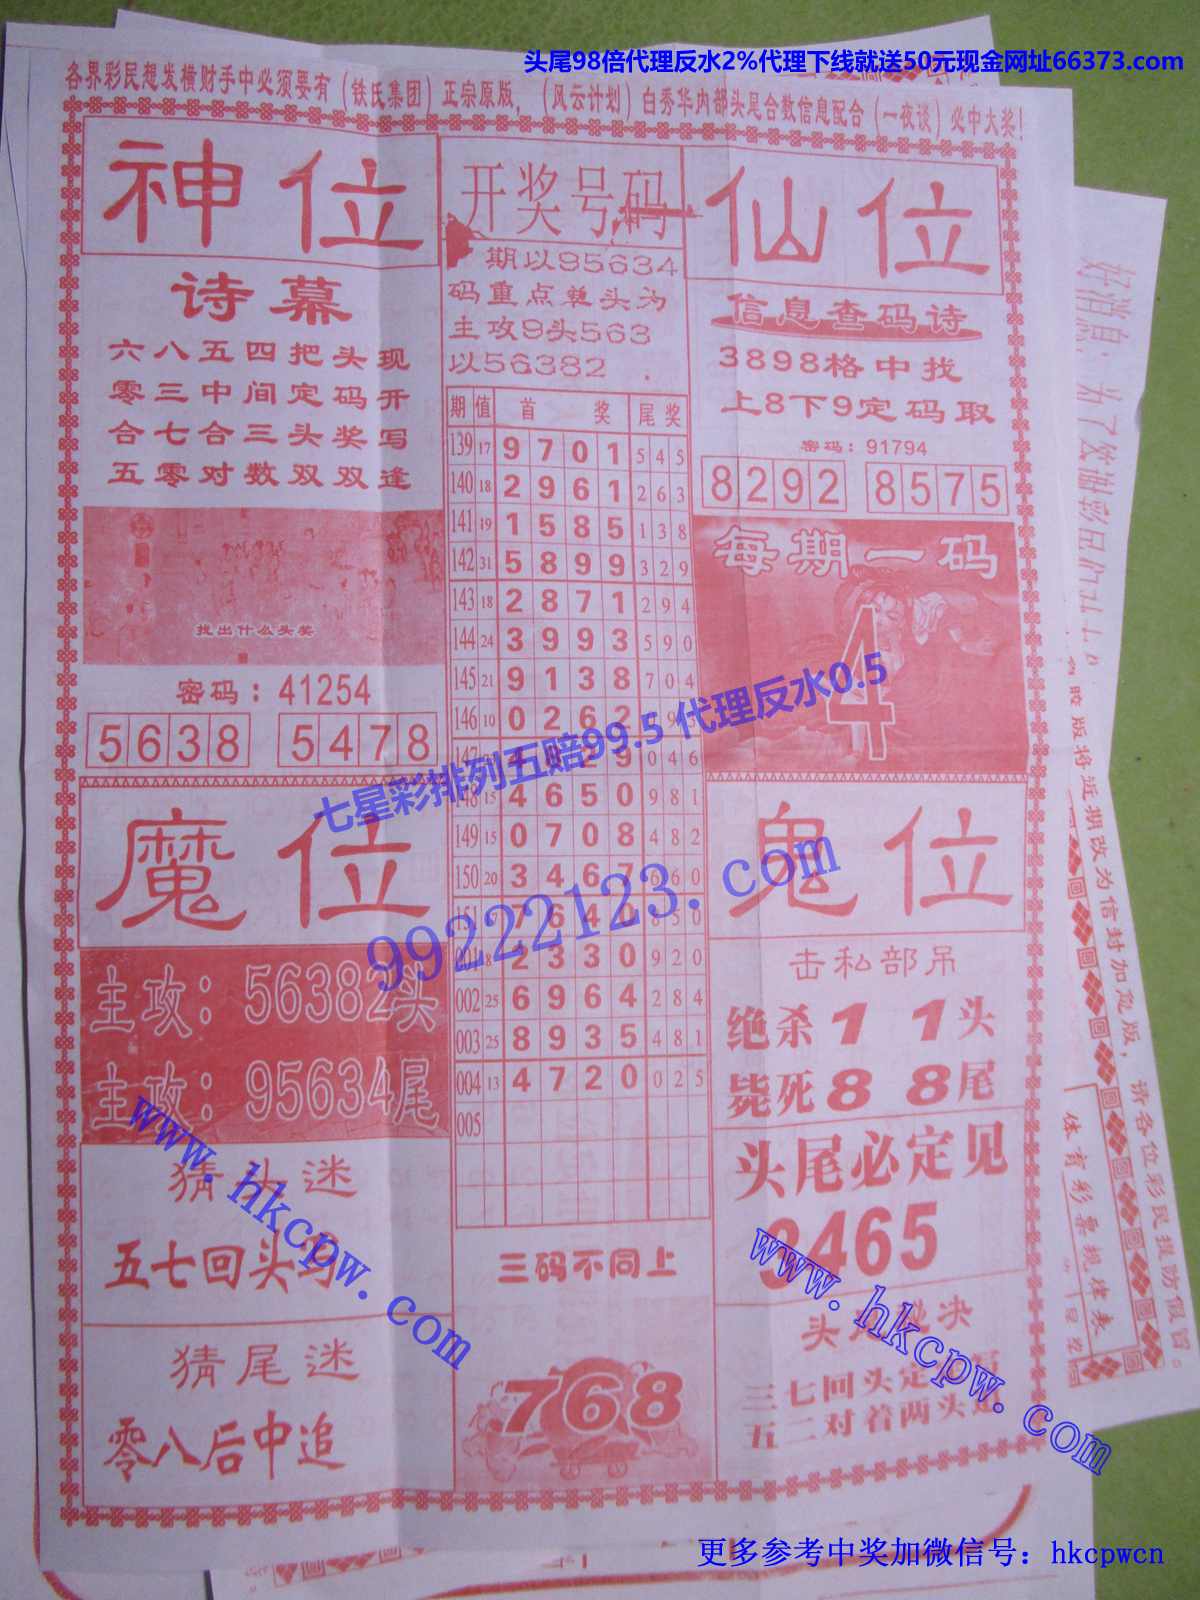 头尾98倍代理反水2%代理下线就送50元现金网址66373.com
各界彩民想发横财手中必须要有（铁氏集团）正宗原版，（风云计划）白秀华内部头尾合数信息配合（一夜谈）必中大奖！
神位
诗幕
六八五四把头现
零三中间定码开
合七合三头奖写
五零对数双双逢
找出什么头奖
密码：41254
5638 5478
开奖号码
期以95634
码重点单头为
主攻9头563
以56382
期 值 首 奖 尾 奖
139 17 9 7 0 1 5 4 5
140 18 2 9 6 1 2 6 3
141 19 1 5 8 5 1 3 8
142 31 5 8 9 9 3 2 9
143 18 2 8 7 1 2 9 4
144 24 3 9 9 3 5 9 0
145 21 9 1 3 8 7 0 4
146 10 0 2 6 2 9
9 0 4 6
15 4 6 5 0 9 8 1
149 15 0 7 0 8 4 8 2
150 20 3 4 6 7 6 6 0
7 6 4 0 5 0
001 8 2 3 3 0 9 2 0
002 25 6 9 6 4 2 8 4
003 25 8 9 3 5 4 8 1
004 13 4 7 2 0 0 2 5
005
三码不同上
768
仙位
信息查码诗
3898格中找
上8下9定码取
密码：91794
8292 8575
每期一码
4
魔位
主攻：56382头
主攻：95634尾
猜头迷
五七回头
猜尾迷
零八后中追
鬼位
击私部吊
绝杀1 1头
毙死8 8尾
头尾必定见
9465
头 决
三七回头定
五二对着两头
七星彩排列五赔99.5 代理反水0.5
99222123.com
www.hkcpw.com
www.hkcpw.com
好消息：为了答谢彩民们
胶版将近期改为信封加包版，请各位彩民提防假冒。
体育彩票规律表
更多参考中奖加微信号：hkcpwcn